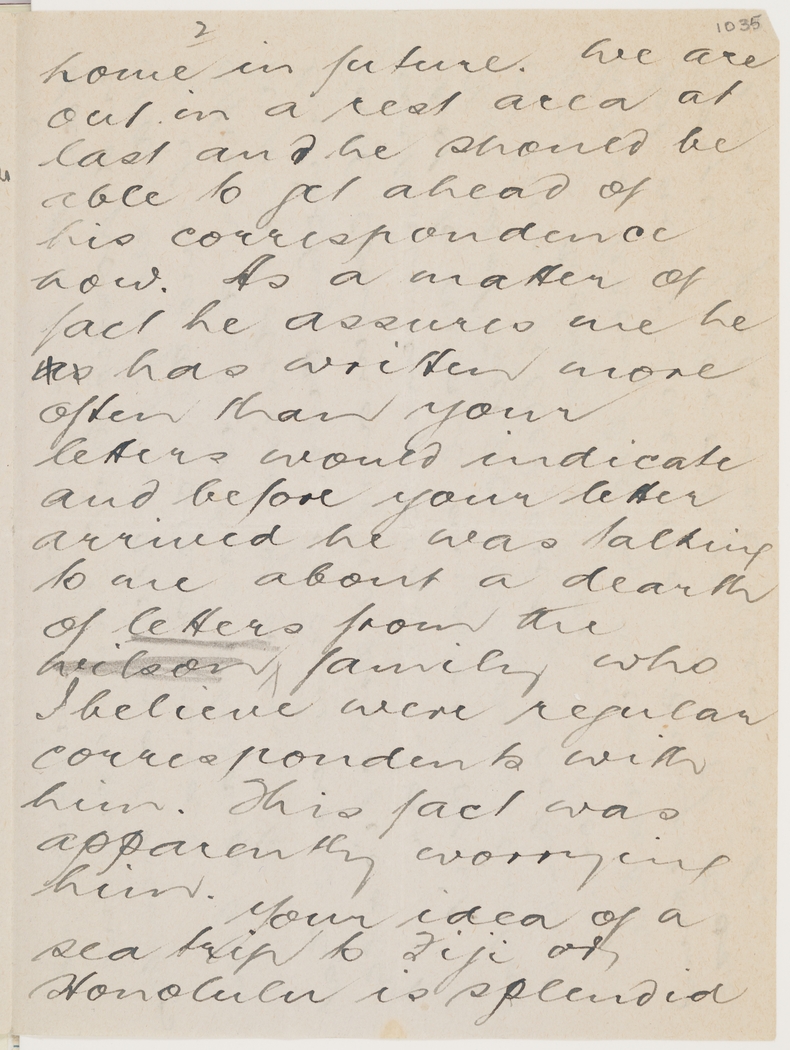 2
1035
home in future. We are
out in a rest area at
last and he should be
able to get ahead of
his correspondence
now. As a matter of
fact he assures me he
has written more
often than your
letters would indicate
and before your letter
arrived he was talking
to me about a dearth
of letters from the
Wilson family who
I believe were regular
correspondents with
him. This fact was
apparently worrying
him.
Your idea of a
sea trip to Fiji or
Honolulu is splendid